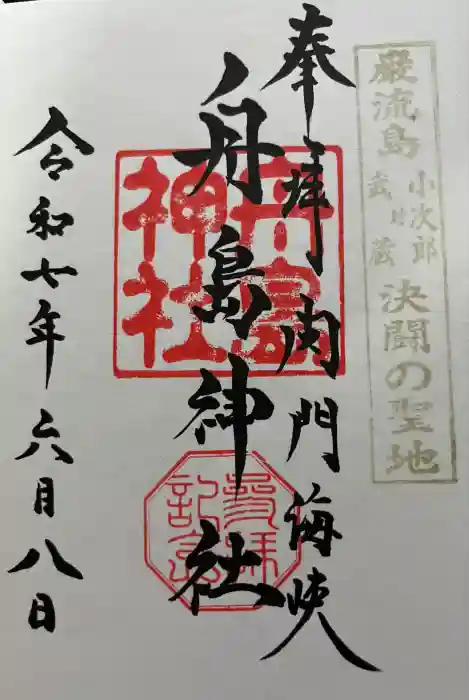 巌流島
小次郎
武蔵
決闘の聖地
奉拝 関門海峡
舟島神社
舟島神社
參拝記念
令和七年六月八日